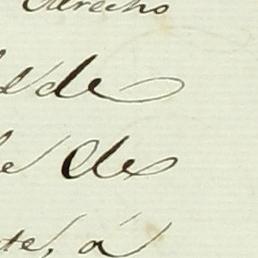 derecho
de
de
te, á